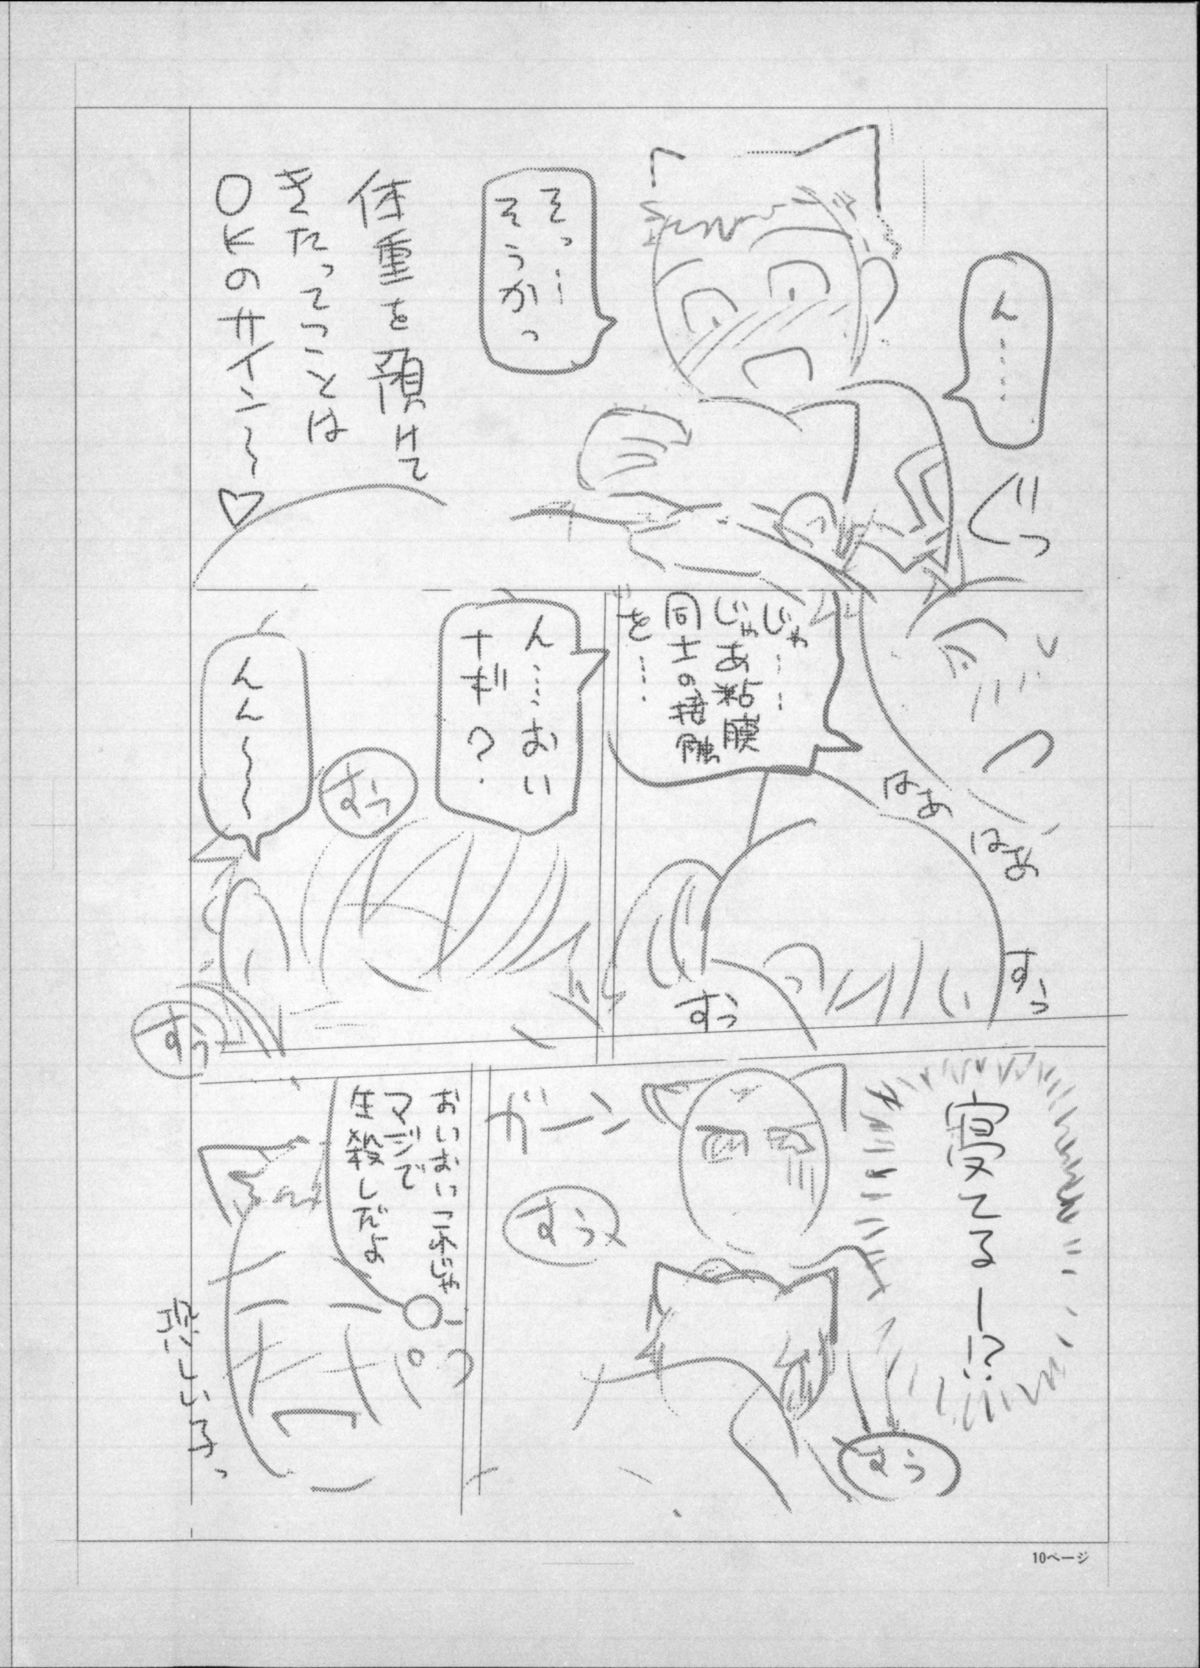 ん……
ぐっ
そっ……
そうかっ
体重を預けて
きたってことは
OKのサイン～♡
じゃ……
じゃあ粘膜
同士の接触
を……
はぁ
はぁ
すっ
すっ
ん……おい
ナギ?
すぅ
んん～～～
すぅ
寝てるー!?
ガーン
すぅ
すぅ
おいおいこれじゃ
マジで
生殺しだよ
恐しい子っ
10ページ